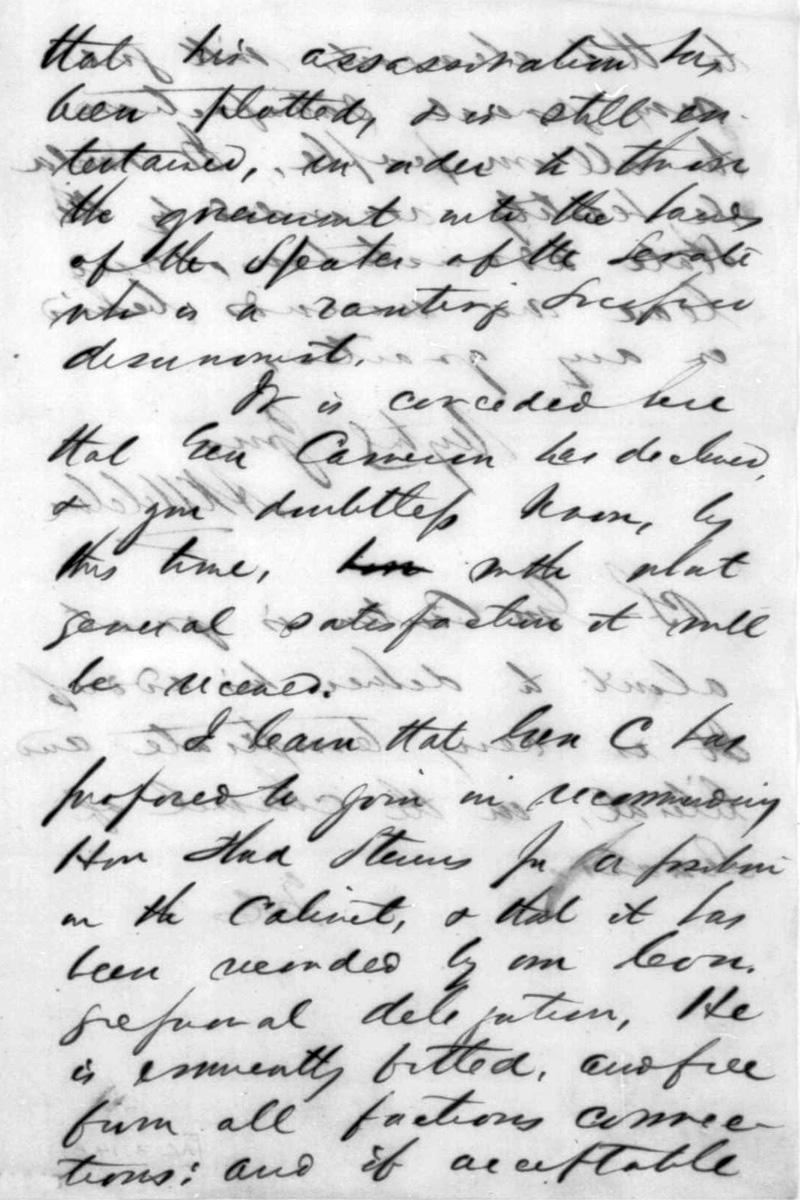 that his assassination has
been plotted, & is still en-
tertained, in order to throw
the government into the hands
of the Speaker of the Senate
who is a ranting
disunionist.
It is conceded here
that Gen Cameron has declined,
& you doubtless know, by
this time, with what
general satisfaction it will
be received.
I learn that Gen C has
proposed to join in recommending
Hon Thad Stevens for a position
in the Cabinet, & that it has
been seconded by our Con-
gressional delegation, He
is eminently fitted, and free
from all factious connec-
tions: and if acceptable